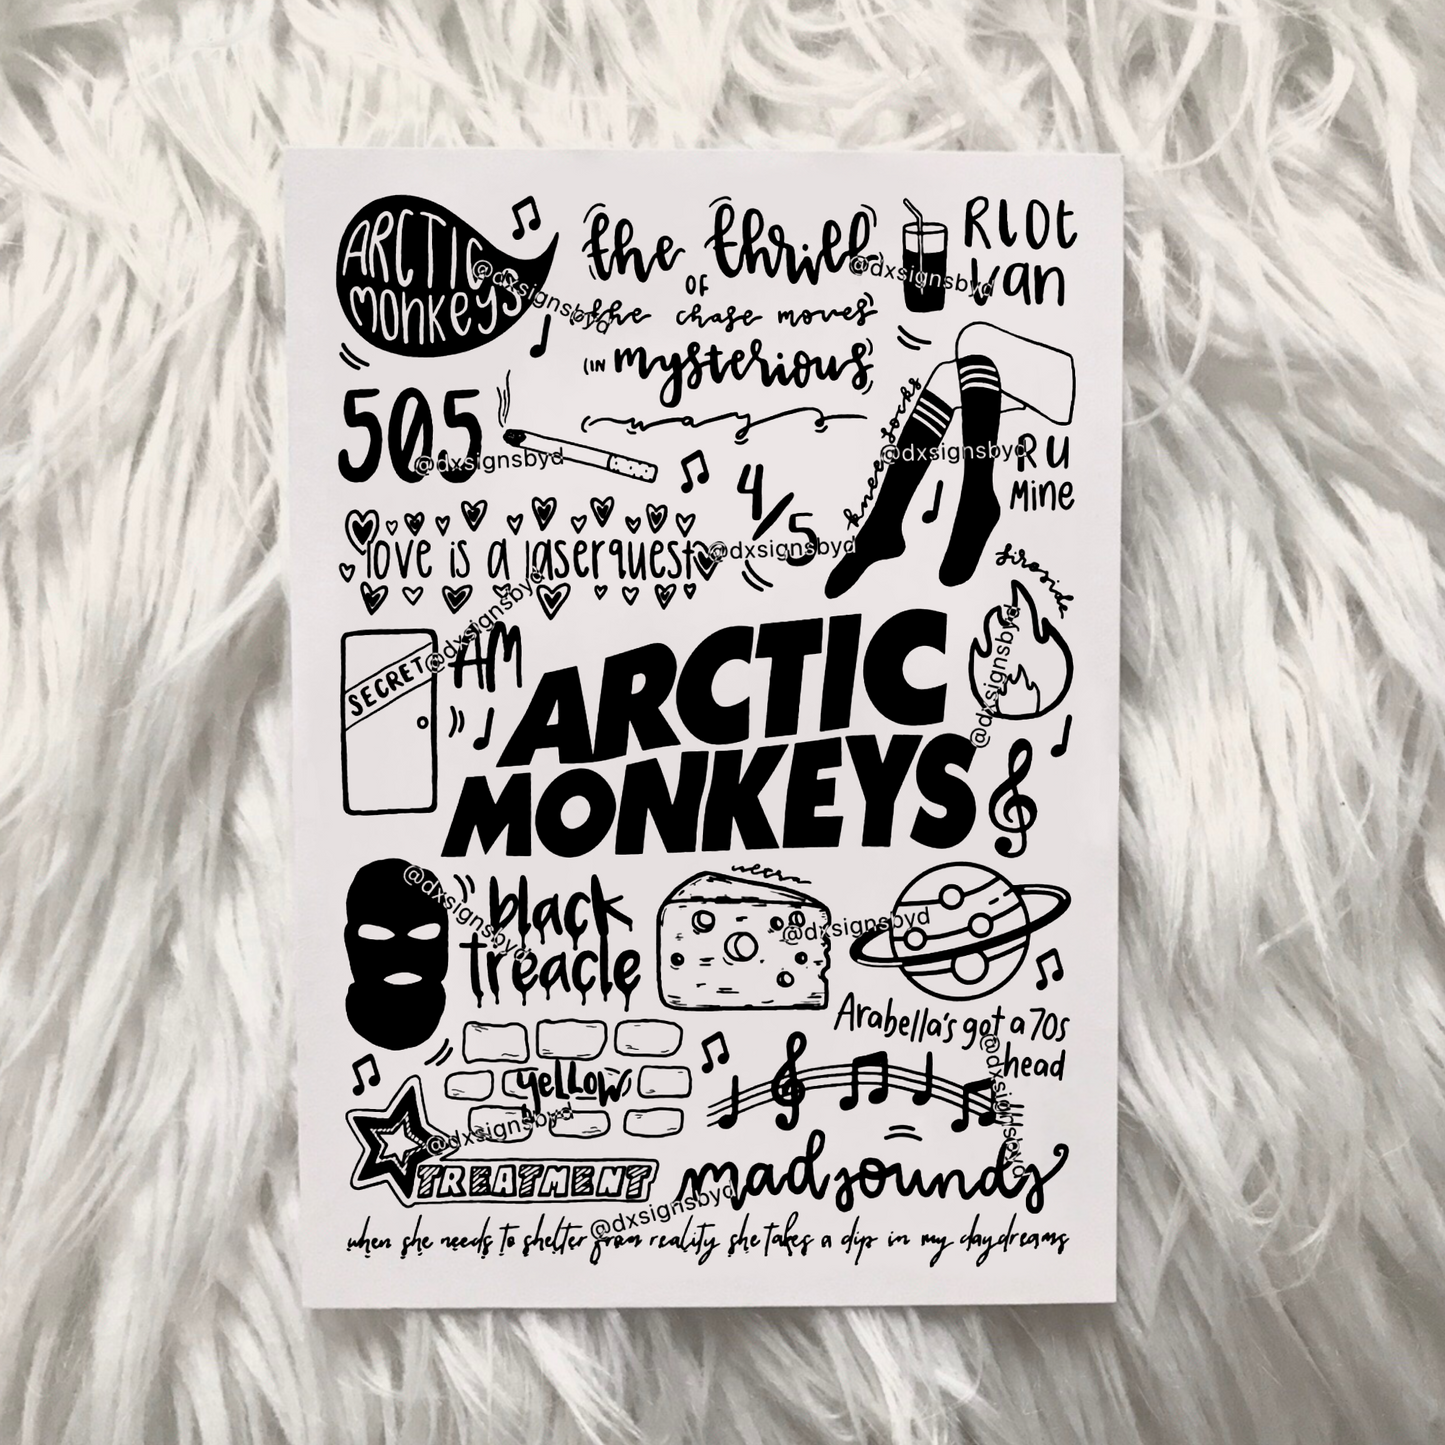 ARCTIC
MONKEYS
the thrill
OF
the chase moves
(IN mysterious
ways
RIOt
Van
505
knee socks
R U
Mine
4/5
love is a laserquest
fireside
SECRET
AM
ARCTIC
MONKEYS
black
treacle
mecca
Arabella's got a 70s
head
yellow
TREATMENT
mad sounds
when she needs to shelter from reality she takes a dip in my daydreams
@dxsignsbyd
@dxsignsbyd
@dxsignsbyd
@dxsignsbyd
@dxsignsbyd
@dxsignsbyd
@dxsignsbyd
@dxsignsbyd
@dxsignsbyd
@dxsignsbyd
@dxsignsbyd
@dxsignsbyd